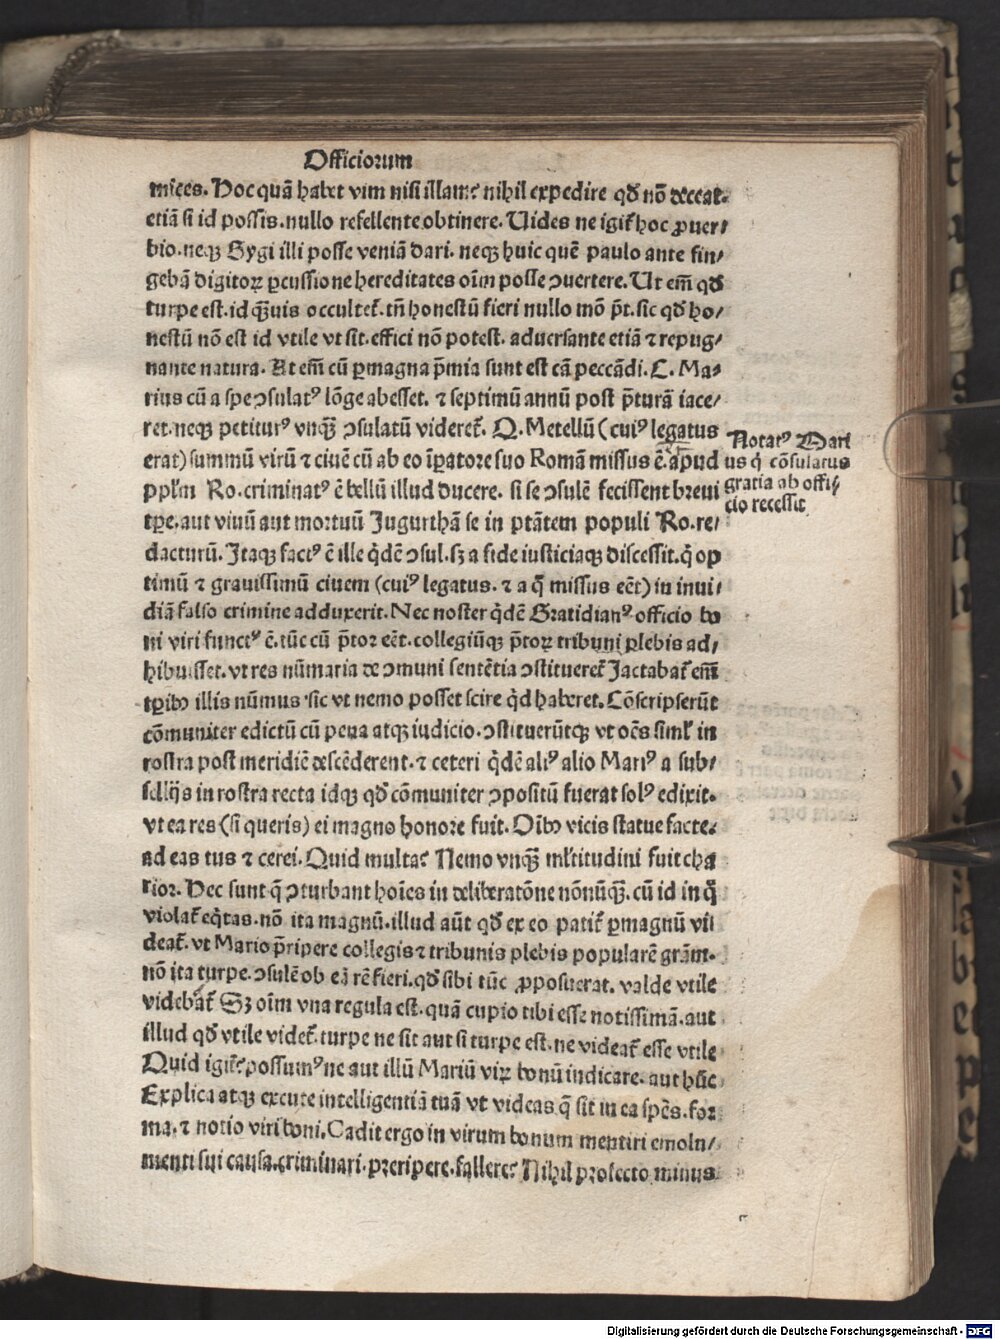 Officiorum
mices. Hoc quã habet vim nisi illam? nihil expedire qđ nõ deceat.
etiã si id possis. nullo refellente obtinere. Uides ne igit̃ hoc ꝓuer⸗
bio. neqꝫ Gygi illi posse veniã dari. neqꝫ huic quẽ paulo ante fin⸗
gebã digitoꝝ ꝑcussione hereditates oĩm posse ꝯuertere. Ut em̃ qđ
turpe est. id q̃uis occultet̃. tñ honestũ fieri nullo mõ p̃t. sic qđ ho⸗
nestũ nõ est id vtile vt sit. effici nõ potest. aduersante etiã ⁊ repug⸗
nante natura. At em̃ cũ ꝑmagna p̃mia sunt est cã peccãdi. C. Ma⸗
rius cũ a spe ꝯsulatꝰ lõge abesset. ⁊ septimũ annũ post p̃turã iace⸗
ret. neqꝫ petiturꝰ vnq̃ꝫ ꝯsulatũ videret̃. Q. Metellũ (cuiꝰ legatus
erat) summũ virũ ⁊ ciuẽ cũ ab eo ĩꝑatore suo Romã missus ẽ. apud
ppl'm Ro. criminatꝰ ẽ bellũ illud ducere. si se ꝯsulẽ fecissent breui
tꝑe. aut viuũ aut mortuũ Jugurthã se in ptãtem populi Ro. re⸗
dacturũ. Itaqꝫ factꝰ ẽ ille q̇dẽ ꝯsul. sꝫ a fide iusticiaqꝫ discessit. q̇ op
timũ ⁊ grauissimũ ciuem (cuiꝰ legatus. ⁊ a q̊ missus eẽt) in inui⸗
diã falso crimine adduxerit. Nec noster q̇dẽ Gratidianꝰ officio bo
ni viri functꝰ ẽ. tũc cũ p̃tor eẽt. collegiũqꝫ p̃toꝝ tribuni plebis ad⸗
hibuisset. vt res nũmaria de ꝯmuni sentẽtia ꝯstitueret̃ Jactabat̃ em̃
tꝑibꝰ illis nũmus sic vt nemo posset scire q̇d haberet. Cõscripserũt
cõmuniter edictũ cũ pena atqꝫ iudicio. ꝯstituerũtqꝫ vt oẽs siml' in
rostra post meridiẽ descẽderent. ⁊ ceteri q̇dẽ aliꝰ alio Mariꝰ a sub⸗
sellijs in rostra recta idqꝫ qđ cõmuniter ꝯpositũ fuerat solꝰ edixit.
vt ea res (si queris) ei magno honore fuit. Oĩbꝰ vicis statue facte.
ad eas tus ⁊ cerei. Quid multa? Nemo vnq̃ꝫ ml'titudini fuit cha
rior. Hec sunt q̃ ꝯturbant hoĩes in deliberatõne nõnũq̃ꝫ. cũ id in q̊
violat̃ eq̇tas. nõ ita magnũ. illud aũt qđ ex eo patit̃ ꝑmagnũ vil
deat̃. vt Mario p̃ripere collegis ⁊ tribunis plebis popularẽ grãm.
nõ ita turpe. ꝯsulẽ ob eã rẽ fieri. qđ sibi tũc ꝓposuerat. valde vtile
videbat̃ Sꝫ oĩm vna regula est. quã cupio tibi esse notissimã. aut
illud qđ vtile videt̃. turpe ne sit aut si turpe est. ne videat̃ esse vtile
Quid igit̃? possumꝰ ne aut illũ Mariũ viꝝ bonũ iudicare. aut hũc
Explica atqꝫ excute intelligentiã tuã vt videas q̃ sit in ea spẽs. for
ma. ⁊ notio viri boni. Cadit ergo in virum bonum mentiri emolu⸗
menti sui causa. criminari. preripere. fallere? Nihil profecto minus
Notatꝰ Mari
us q̇ cõsulatus
gratia ab offi⸗
cio recessit
Digitalisierung gefördert durch die Deutsche Forschungsgemeinschaft - DFG